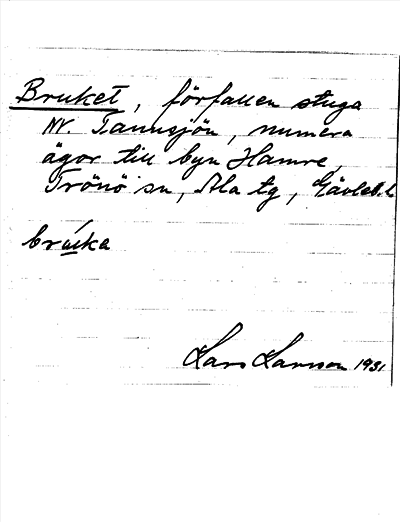 Bruket, förfallen stuga
NV. Tannsjön, numera
ägor till byn Hamre,
Trönö sn, Ala tg, Gävleb. l.
brúka
Lars Larsson 1931